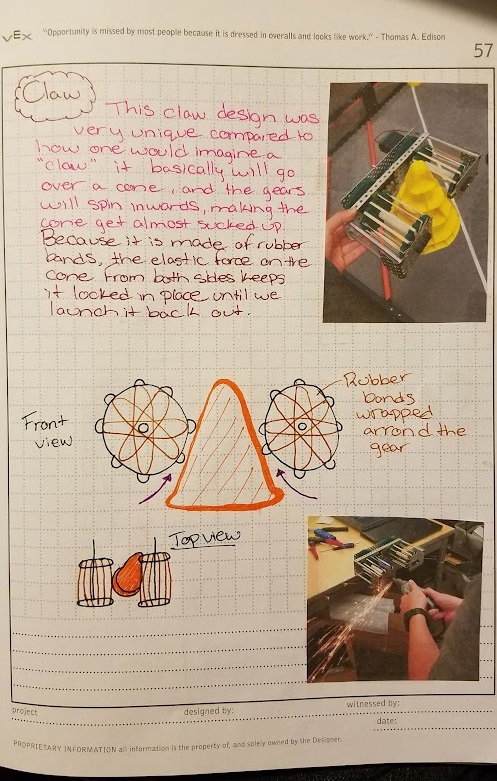 VEX
"Opportunity is missed by most people because it is dressed in overalls and looks like work." - Thomas A. Edison
57
Claw
This claw design was
very unique compared to
how one would imagine a
"claw" it basically will go
over a cone, and the gears
will spin inwards, making the
cone get almost sucked up.
Because it is made of rubber
bands, the elastic force on the
cone from both sides keeps
it locked in place until we
launch it back out.
Front
view
Rubber
bands
wrapped
arrond the
gear
Top view
project
designed by:
witnessed by:
date:
PROPRIETARY INFORMATION all information is the property of, and solely owned by the Designer.